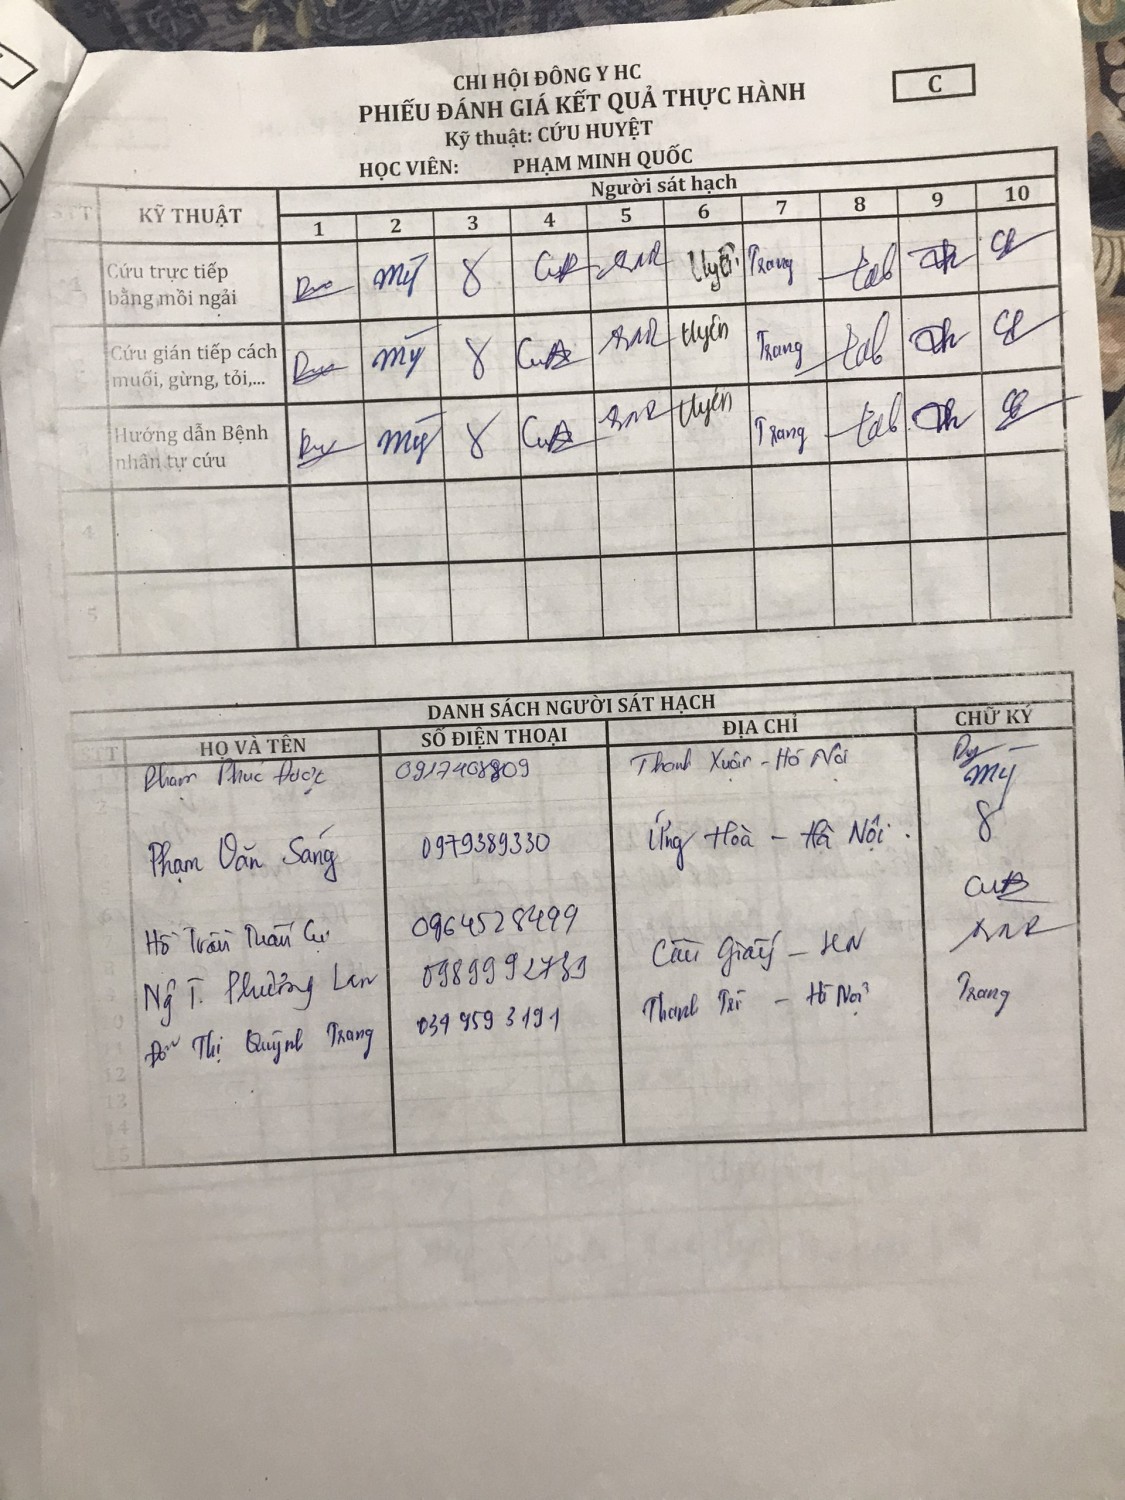 CHI HỘI ĐÔNG Y HC
C
PHIẾU ĐÁNH GIÁ KẾT QUẢ THỰC HÀNH
Kỹ thuật: CỨU HUYỆT
HỌC VIÊN: PHẠM MINH QUỐC
STT KỸ THUẬT Người sát hạch
1 2 3 4 5 6 7 8 9 10
1 Cứu trực tiếp bằng mồi ngải Mỹ 8 Uyên Trang
Cứu gián tiếp cách muối, gừng, tỏi,... Mỹ 8 Uyên Trang
Hướng dẫn Bệnh nhân tự cứu Mỹ 8 Uyên Trang
4
5
DANH SÁCH NGƯỜI SÁT HẠCH
STT HỌ VÀ TÊN SỐ ĐIỆN THOẠI ĐỊA CHỈ CHỮ KÝ
Phạm Phúc Được 0917408809 Thanh Xuân - Hà Nội
2 Mỹ
Phạm Văn Sáng 0979389330 Ứng Hoà - Hà Nội. 8
Hồ Trần Tuấn Cự 0964528499
Ng T. Phương Lan 0989992739 Cầu Giấy - HN
Thị Quỳnh Trang 034 959 3191 Thanh Trì - Hà Nội Trang
12
13
14
15